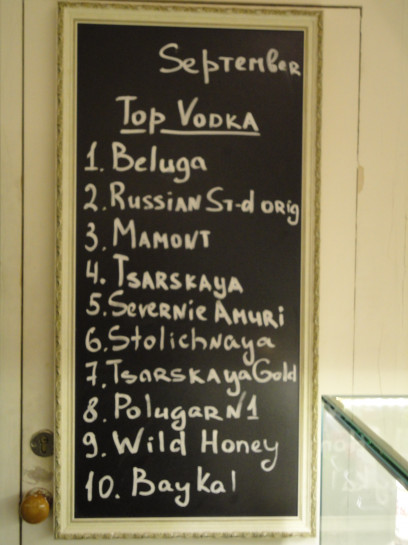 September
Top Vodka
1. Beluga
2. Russian St-d orig
3. Mamont
4. Tsarskaya
5. Severnie Amuri
6. Stolichnaya
7. Tsarskaya Gold
8. Polugar N1
9. Wild Honey
10. Baykal